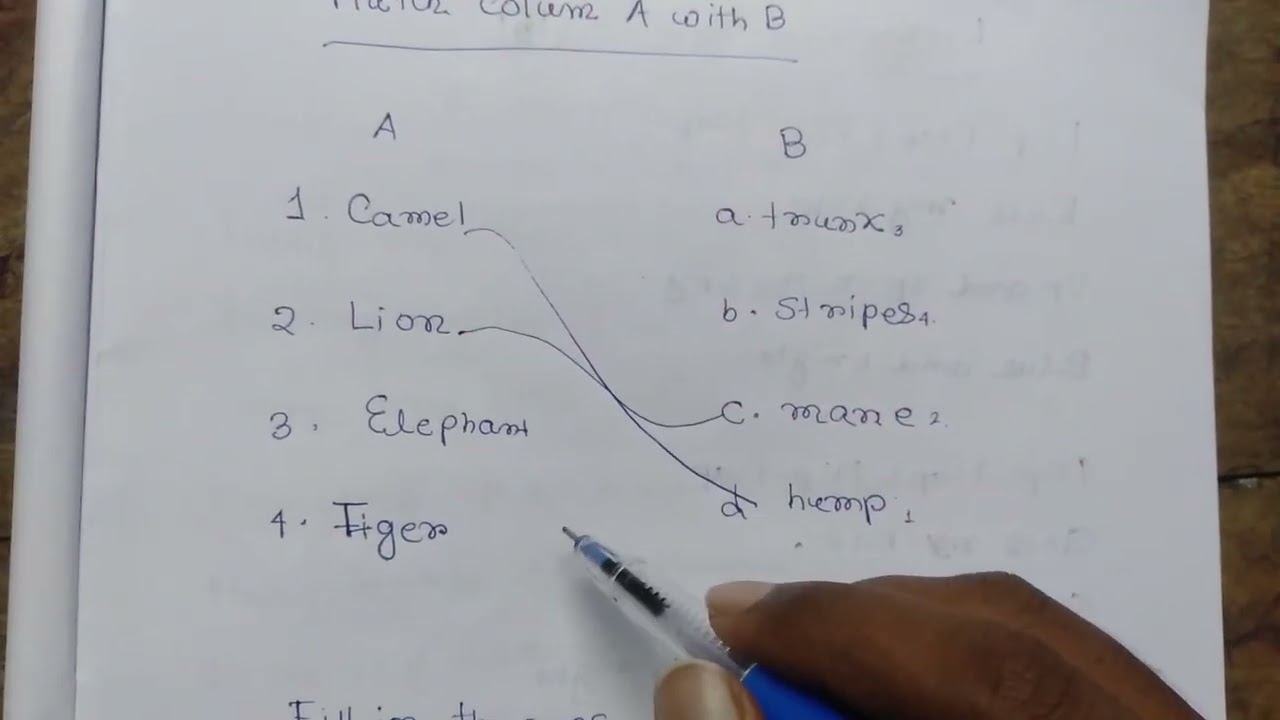 Match Column A with B
A B
1. Camel a. trunk 3
2. Lion b. Stripes 4.
3. Elephant c. mane 2.
4. Tiger d hump 1
Fill in the